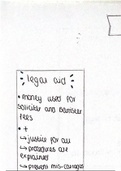 legal aid
• money used for
solicitor and barrister
fees
• +
↳ justice for all
↳ procedures are
explained
↳ prevent mis-carriages